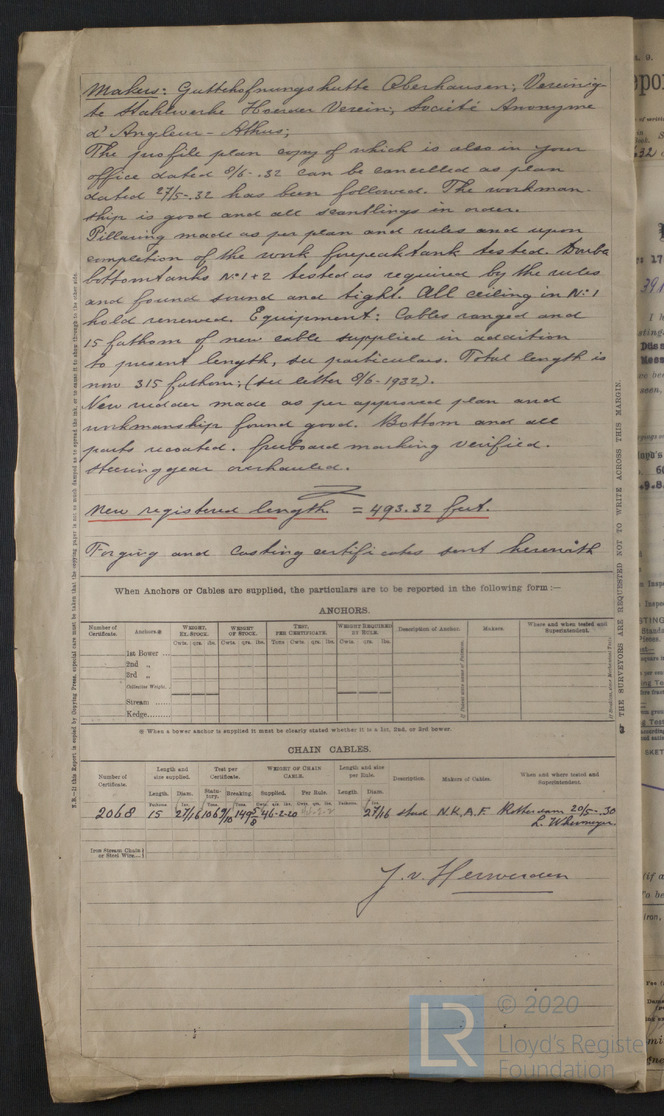 Makers: Guttehofnungshutte Oberhausen; Vereinig-
te Stahlwerke Hoerder Verein; Société Anonyme
d'Angleur - Athus;
The profile plan copy of which is also in your
office dated 8/6-.32 can be cancelled as plan
dated 27/5-.32 has been followed. The workman-
ship is good and all scantlings in order.
Pillaring made as per plan and rules and upon
completion of the work forepeaktank tested. Double
bottomtanks No 1+2 tested as required by the rules
and found sound and tight. All ceiling in No 1
hold renewed. Equipment: Cables ranged and
15 fathom of new cable supplied in addition
to present length, see particulars. Total length is
now 315 fathom; (see letter 8/6-1932).
New rudder made as per approved plan and
workmanship found good. Bottom and all
parts recoated. Freeboard marking verified.
Steeringgear overhauled.
New registered length = 493.32 feet.
Forging and Casting certificates sent herewith
When Anchors or Cables are supplied, the particulars are to be reported in the following form :—
ANCHORS.
Number of Certificate. Anchors.※ WEIGHT, EX. STOCK. WEIGHT OF STOCK. TEST, PER CERTIFICATE. WEIGHT REQUIRED BY RULE. Description of Anchor. Makers. Where and when tested and Superintendent.
Cwts. qrs. lbs. Cwts. qrs. lbs. Tons Cwts. qrs. lbs. Cwts. qrs. lbs.
1st Bower ...
2nd „
3rd „
Collective Weight.
Stream
Kedge
※ When a bower anchor is supplied it must be clearly stated whether it is a 1st, 2nd, or 3rd bower.
CHAIN CABLES.
Number of Certificate. Length and size supplied. Test per Certificate. WEIGHT OF CHAIN CABLE. Length and size per Rule. Description. Makers of Cables. When and where tested and Superintendent.
Length. Diam. Statutory. Breaking Supplied. Per Rule. Length. Diam.
2068 15 27/16 106 9/10 149 5/8 46-2-20 27/16 stud N.K.A.F. Rotterdam 20/5-.30
Iron Stream Chain or Steel Wire
J. v. Herwerden
N.B.—If this Report is copied by Copying Press, especial care must be taken that the copying paper is not so much damped as to spread the ink, or to cause it to show through to the other side.
THE SURVEYORS ARE REQUESTED NOT TO WRITE ACROSS THIS MARGIN.
LR
© 2020
Lloyd's Registe
Foundation